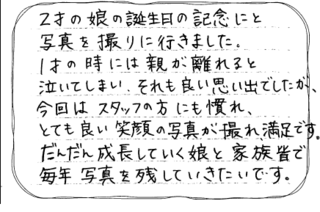 2才の娘の誕生日の記念にと
写真を撮りに行きました。
1才の時には親が離れると
泣いてしまい、それも良い思い出でしたが、
今回はスタッフの方にも慣れ、
とても良い笑顔の写真が撮れ満足です。
だんだん成長していく娘と家族皆で
毎年写真を残していきたいです。